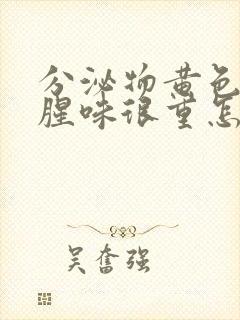 分泌物黄色
腥味很重怎
吴奋强